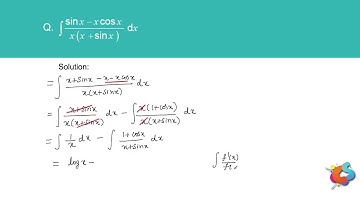 Q. ∫ (sin x − x cos x) / (x (x + sin x)) dx
Solution:
= ∫ (x + sinx − x − x cosx) / (x(x+sinx)) dx
= ∫ (x+sinx) / (x(x+sinx)) dx − ∫ (x(1+cosx)) / (x(x+sinx)) dx
= ∫ 1/x dx − ∫ (1+cosx) / (x+sinx) dx
= log x −
∫ f'(x) / f(x